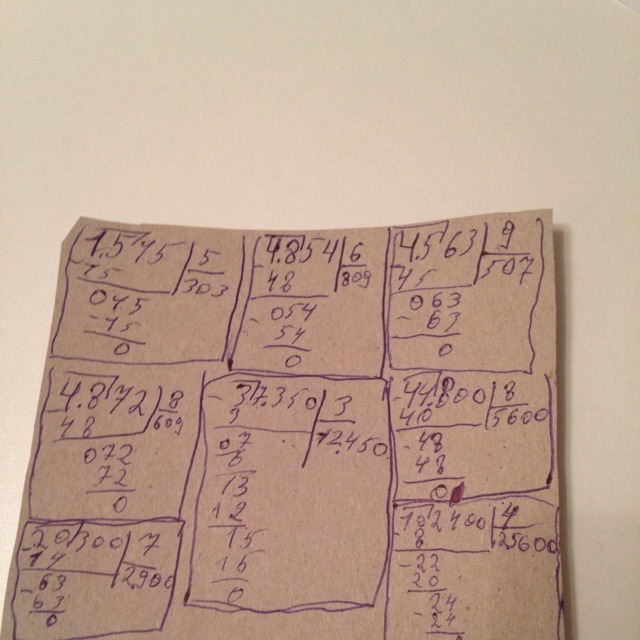 1.545 | 5
- 15 | 303
045
- 15
0
4.854 | 6
- 48 | 809
- 054
54
0
4.563 | 9
- 45 | 507
063
- 63
0
4.872 | 8
- 48 | 609
072
72
0
- 37.350 | 3
3 | 12.450
07
6
13
12
15
15
0
- 44.800 | 8
40 | 5600
- 48
48
0
20300 | 7
- 14 | 2900
- 63
63
0
102400 | 4
- 8 | 25600
- 22
20
24
- 24